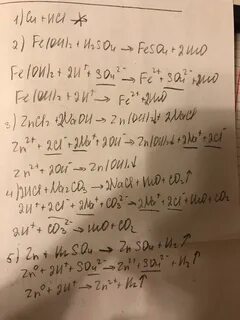 1) Cu + HCl ↛
2) Fe(OH)₂ + H₂SO₄ → FeSO₄ + 2H₂O
Fe(OH)₂ + 2H⁺ + SO₄²⁻ → Fe²⁺ + SO₄²⁻ + 2H₂O
Fe(OH)₂ + 2H⁺ → Fe²⁺ + 2H₂O
3) ZnCl₂ + 2NaOH → Zn(OH)₂↓ + 2NaCl
Zn²⁺ + 2Cl⁻ + 2Na⁺ + 2OH⁻ → Zn(OH)₂↓ + 2Na⁺ + 2Cl⁻
Zn²⁺ + 2OH⁻ → Zn(OH)₂↓
4) 2HCl + Na₂CO₃ → 2NaCl + H₂O + CO₂↑
2H⁺ + 2Cl⁻ + 2Na⁺ + CO₃²⁻ → 2Na⁺ + 2Cl⁻ + H₂O + CO₂
2H⁺ + CO₃²⁻ → H₂O + CO₂
5) Zn + H₂SO₄ → ZnSO₄ + H₂↑
Zn⁰ + 2H⁺ + SO₄²⁻ → Zn²⁺ + SO₄²⁻ + H₂↑
Zn⁰ + 2H⁺ → Zn²⁺ + H₂↑